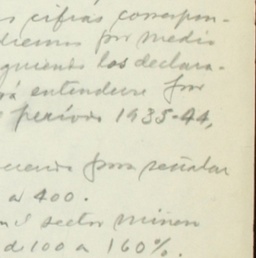 s cifras correspon-
diremos por medio
guiente las declara-
rá entenderse por
período 1935-44,
para señalar
a 400.
el sector minero
de 100 a 160%.